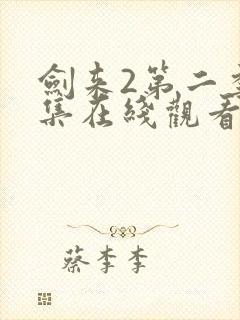 劍来2第二季
集在綫觀看
蔡李李